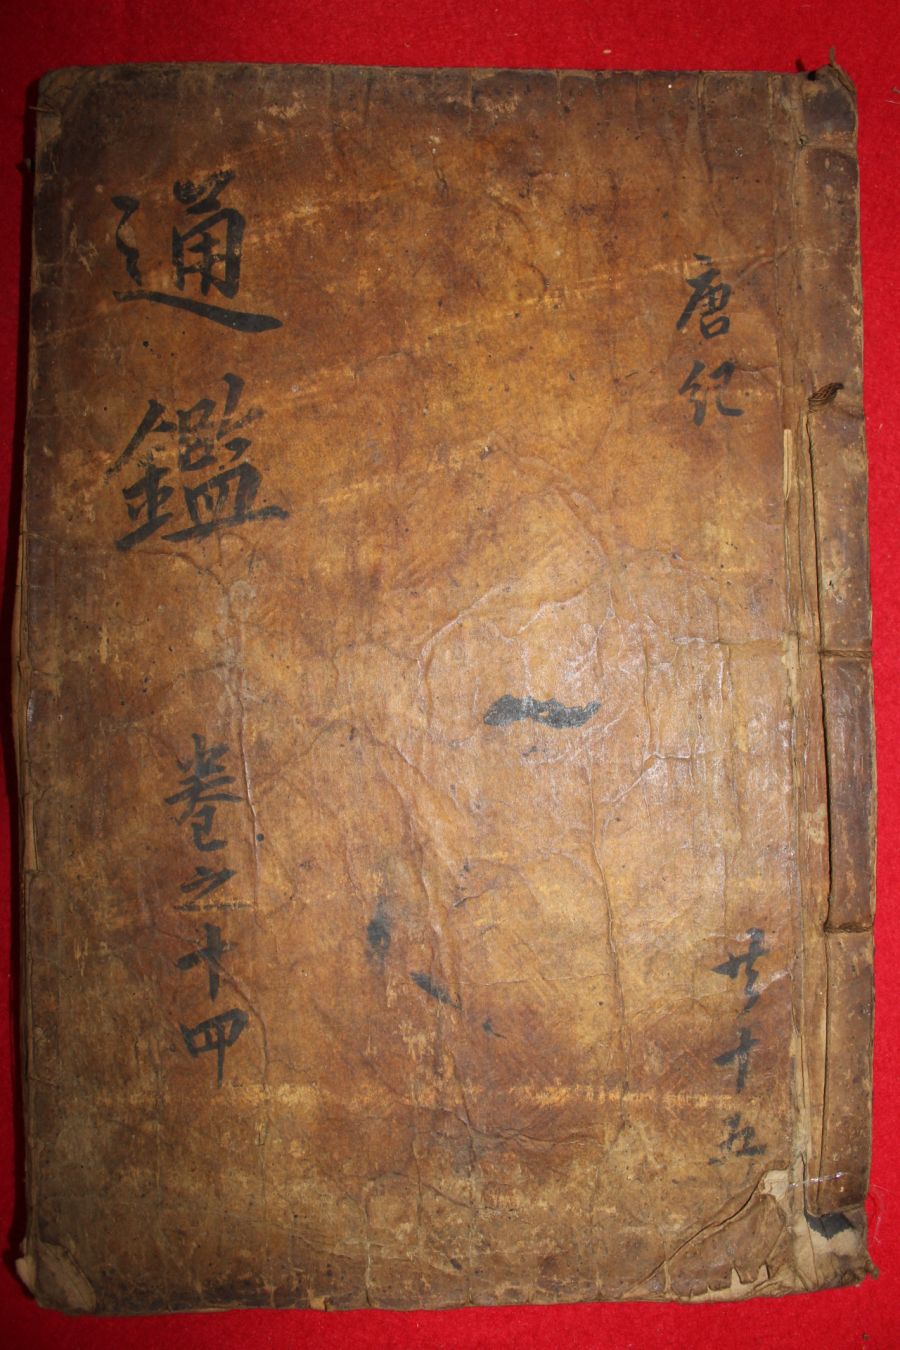 唐紀
共十五
通鑑
卷之十四